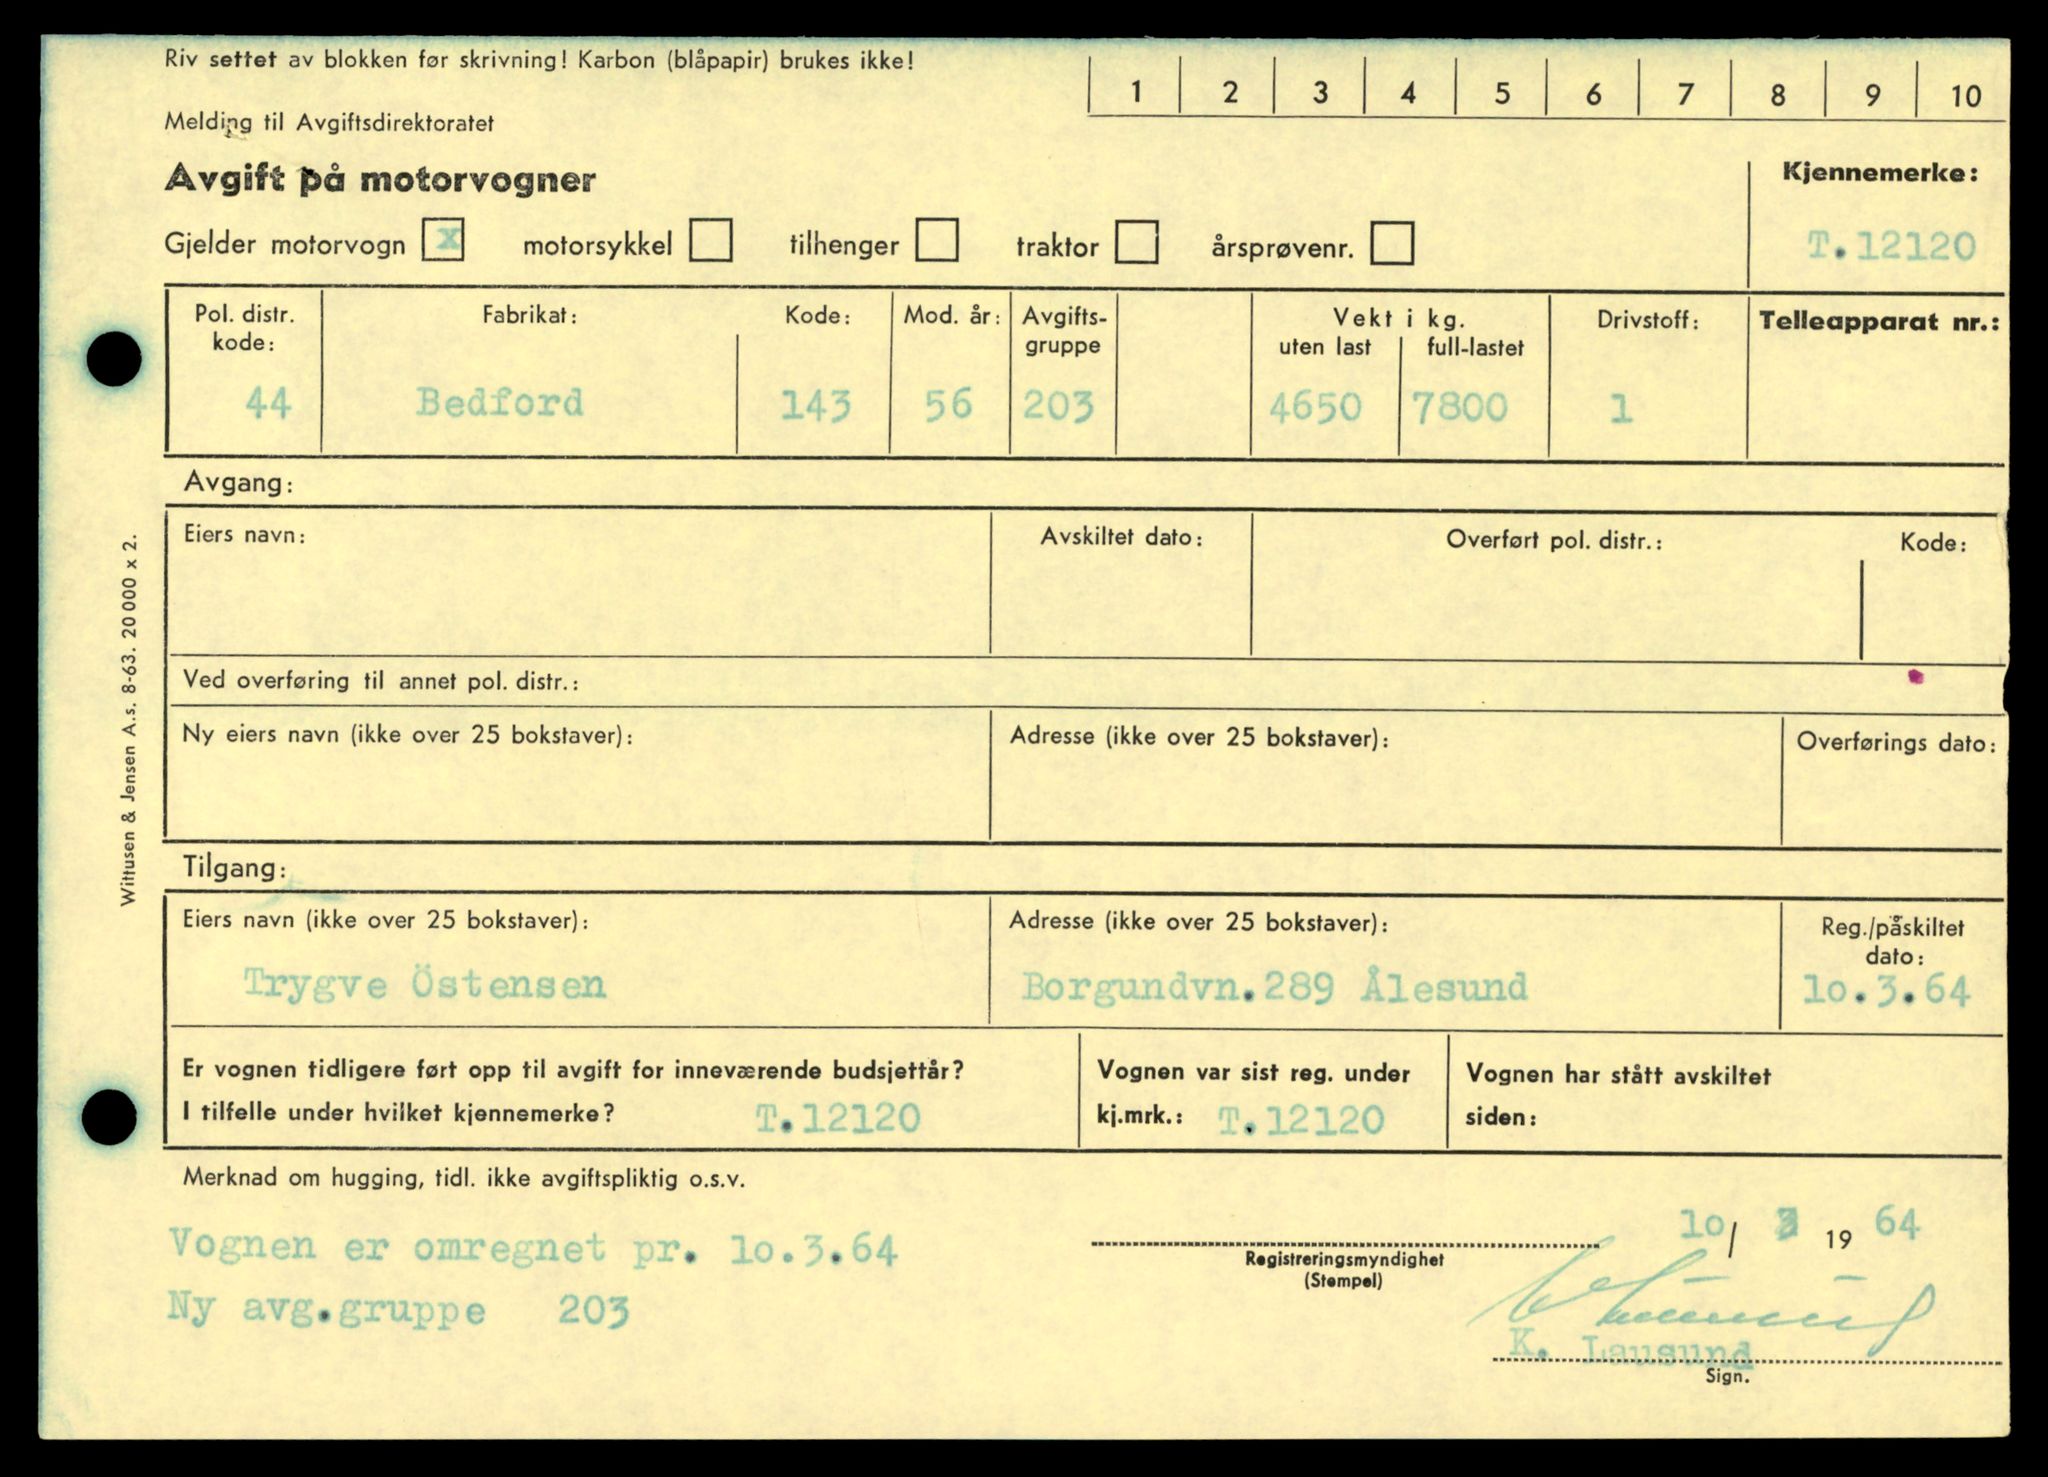 Riv settet av blokken før skrivning! Karbon (blåpapir) brukes ikke!
1 2 3 4 5 6 7 8 9 10
Melding til Avgiftsdirektoratet
Avgift på motorvogner
Kjennemerke:
Gjelder motorvogn x motorsykkel tilhenger traktor årsprøvenr.
T.12120
Pol. distr. kode: Fabrikat: Kode: Mod. år: Avgifts-gruppe Vekt i kg. uten last full-lastet Drivstoff: Telleapparat nr.:
44 Bedford 143 56 203 4650 7800 1
Avgang:
Eiers navn: Avskiltet dato: Overført pol. distr.: Kode:
Ved overføring til annet pol. distr.:
Ny eiers navn (ikke over 25 bokstaver): Adresse (ikke over 25 bokstaver): Overførings dato:
Tilgang:
Eiers navn (ikke over 25 bokstaver): Adresse (ikke over 25 bokstaver): Reg./påskiltet dato:
Trygve Östensen Borgundvn.289 Ålesund 10.3.64
Er vognen tidligere ført opp til avgift for inneværende budsjettår? Vognen var sist reg. under Vognen har stått avskiltet
I tilfelle under hvilket kjennemerke? T.12120 kj.mrk.: T.12120 siden:
Merknad om hugging, tidl. ikke avgiftspliktig o.s.v.
Vognen er omregnet pr. 10.3.64
Ny avg.gruppe 203
10/ 3 19 64
Registreringsmyndighet
(Stempel)
K. Lausund
Sign.
Wittusen & Jensen A.s. 8-63. 20 000 x 2.